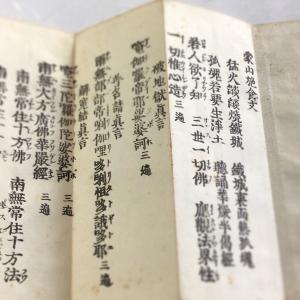 蒙山施食文
猛火燄燄燒鐵城　鐵城裏面熱孤魂
孤魂若要生淨土　聽誦華嚴半偈經
若人欲了知　三世一切佛　應觀法界性
一切惟心造 三遍
破地獄真言
唵伽囉帝耶娑婆訶 三遍
普召請真言
南無部部帝唎伽哩哆唎怛哆誐哆耶 三遍
解冤結真言
唵三陀囉伽陀娑婆訶 三遍
南無大方廣佛華嚴經 三遍
南無常住十方佛　南無常住十方法